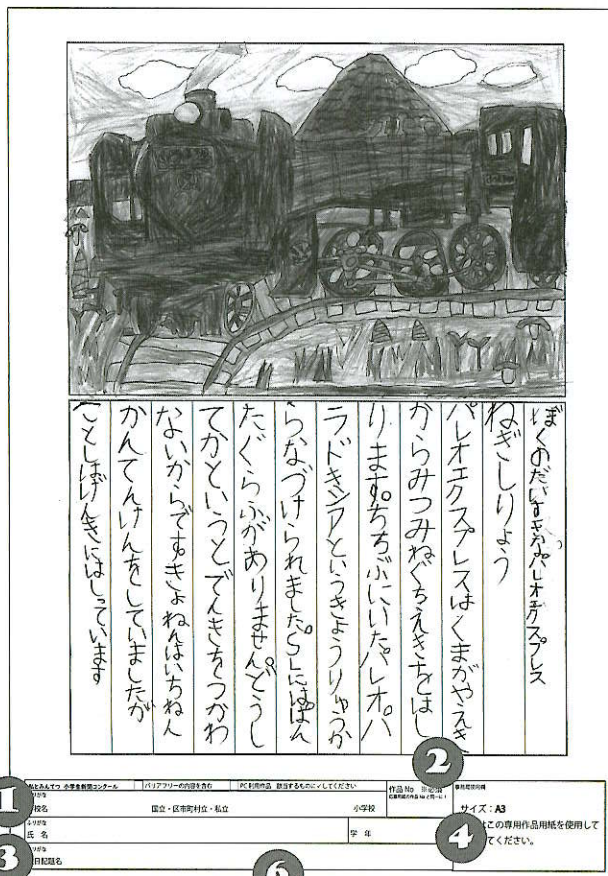 ぼくのだいすきなパレオエクスプレス
ねぎしりょう
パレオエクスプレスはくまがやえき
からみつみねぐちえきをはし
ります。ちちぶにいたパレオパ
ラドキシアというきょうりゅうか
らなづけられました。SLにはぱん
たぐらふがありません。どうし
てかというとでんきをつかわ
ないからです。きょねんはいちねん
かんてんけんをしていましたが
ことしはげんきにはしっています
私とみんてつ 小学生新聞コンクール
バリアフリーの内容を含む
PC利用作品 該当するものに✓してください
作品No ※必須
1
2
ふりがな
校名
国立・区市町村立・私立
小学校
サイズ：A3
はこの専用作品用紙を使用して
てください。
4
ふりがな
氏 名
学 年
3
ふりがな
日記題名
6